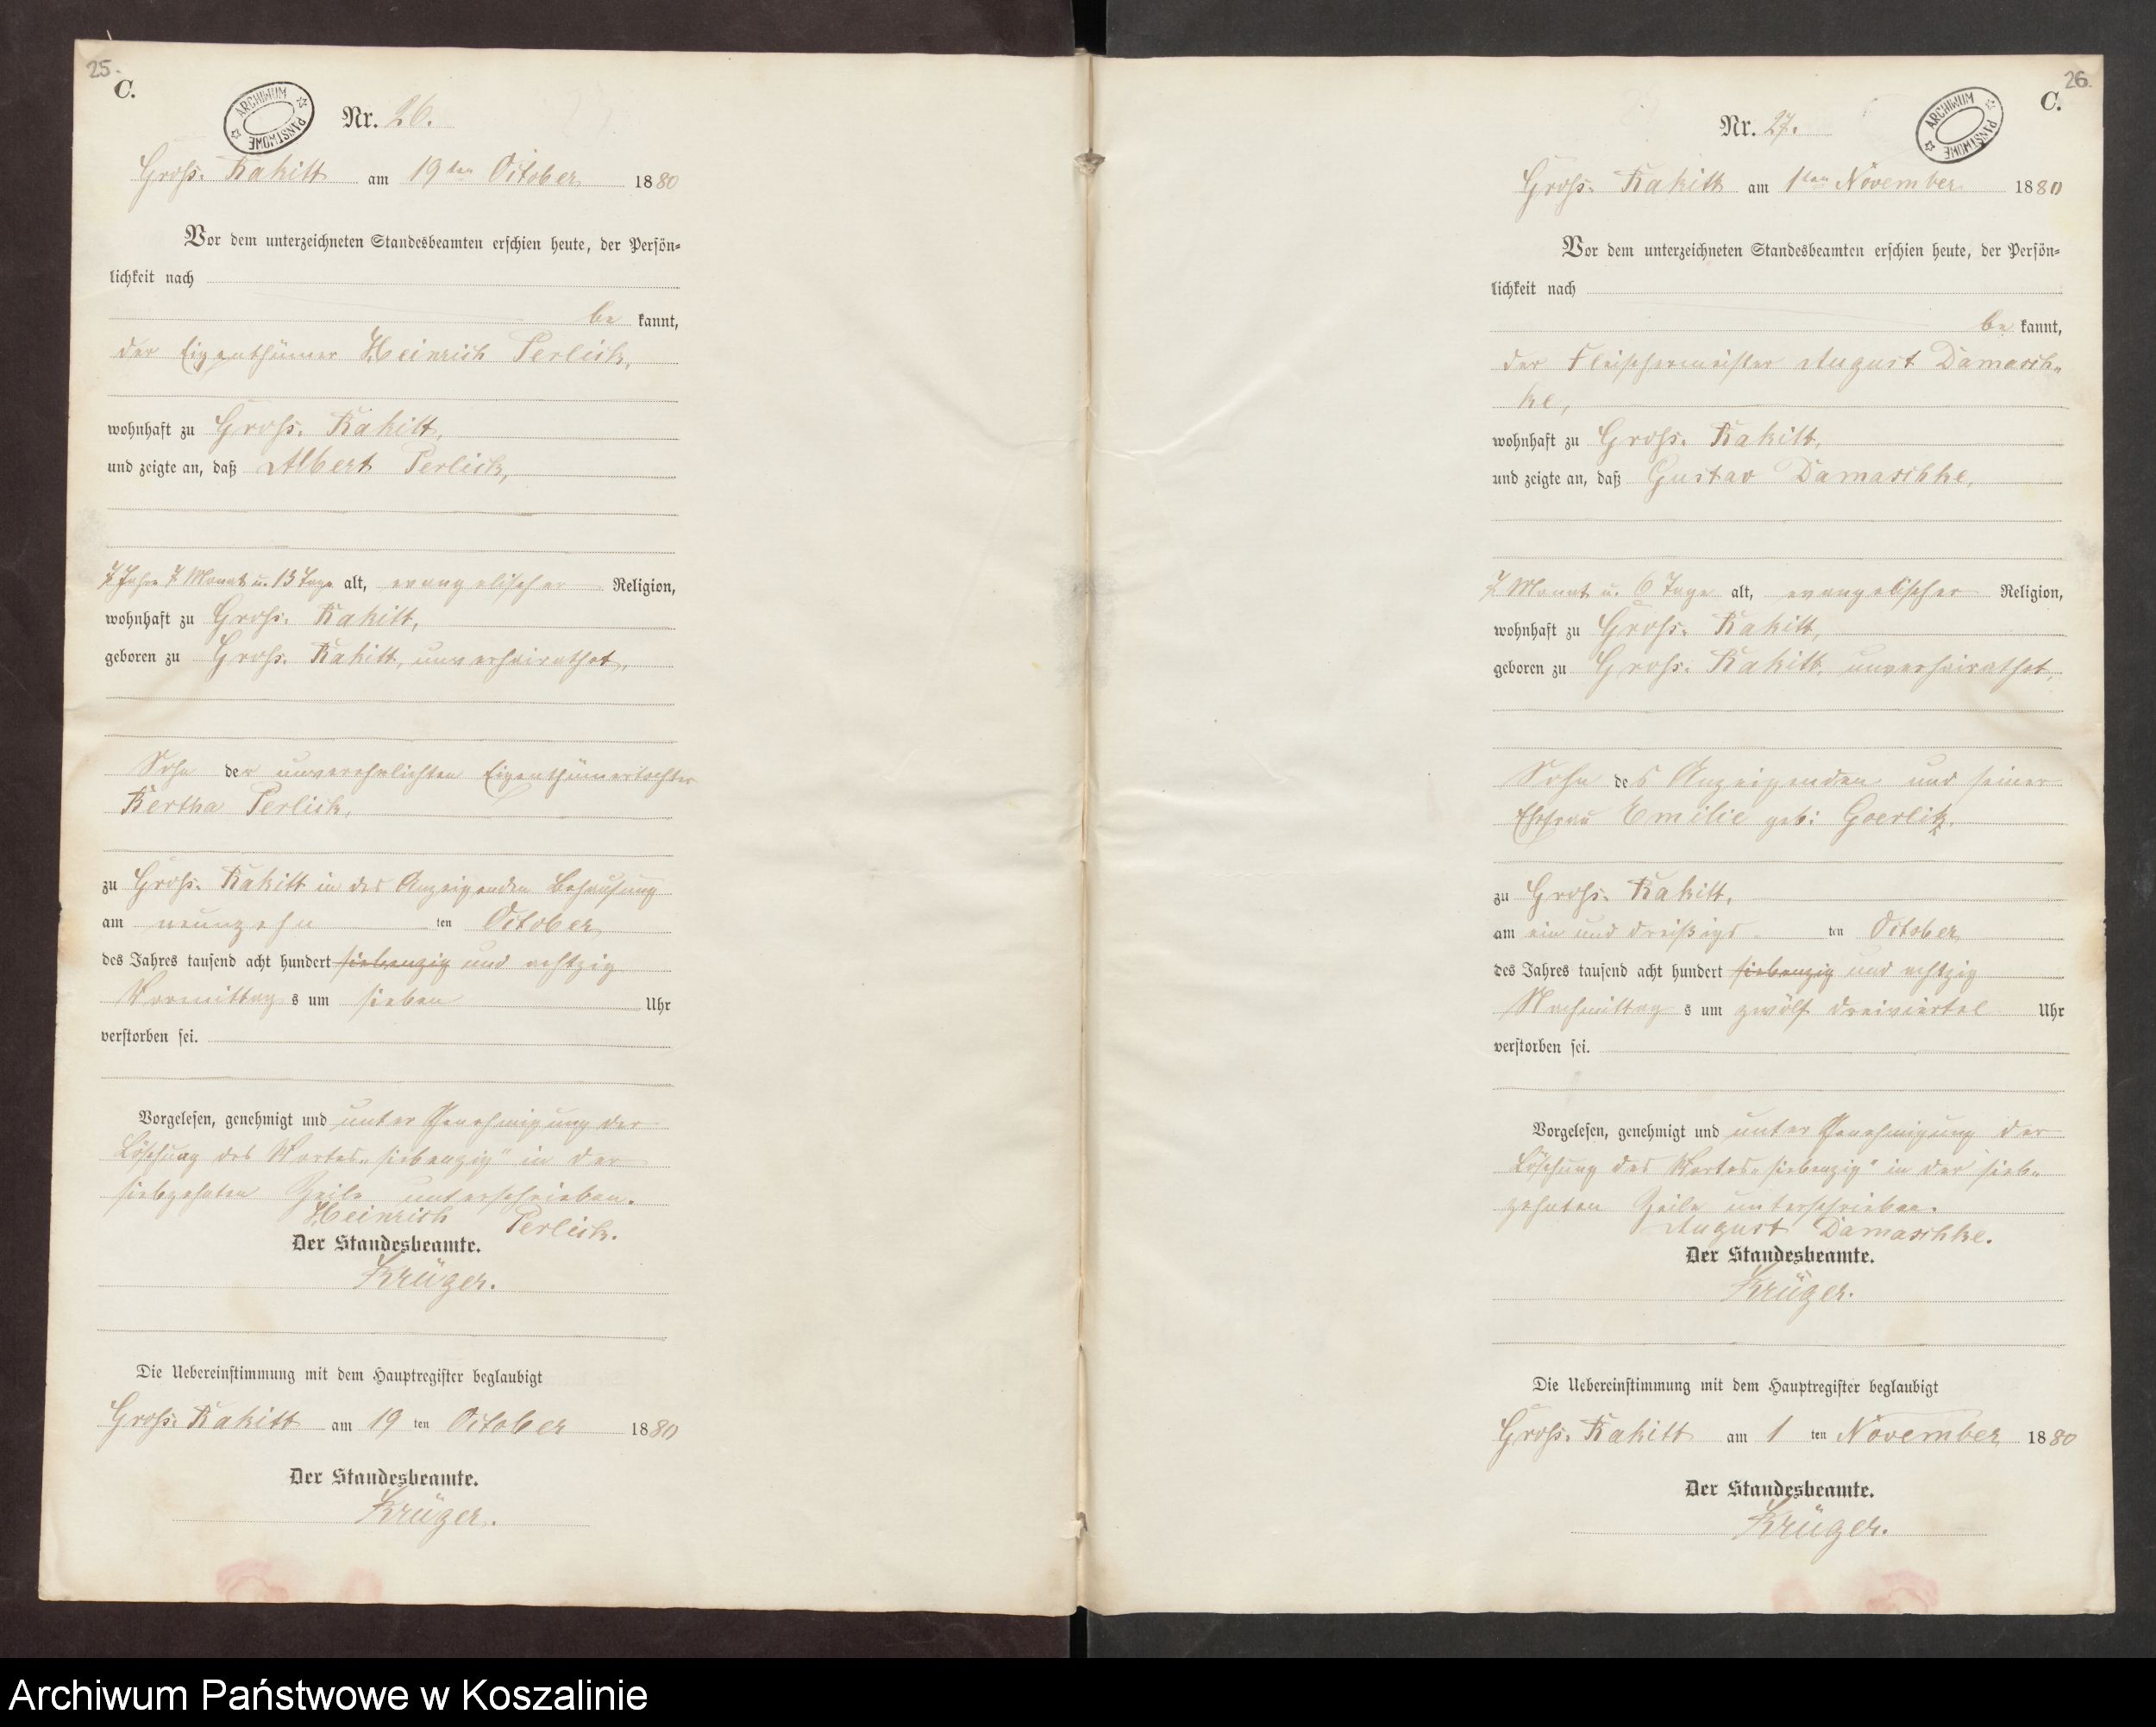 25.
C.
ARCHIWUM PAŃSTWOWE
Nr. 26.
Gross. Rakitt am 19ten October 1880
Vor dem unterzeichneten Standesbeamten erschien heute, der Persön-
lichkeit nach
be kannt,
der Eigenthümer Heinrich Perlick,
wohnhaft zu Gross. Rakitt,
und zeigte an, daß Albert Perlick,
7 Jahre 7 Monat u. 13 Tage alt, evangelischer Religion,
wohnhaft zu Gross. Rakitt,
geboren zu Gross. Rakitt, unverheirathet,
Sohn der unverehelichten Eigenthümertochter
Bertha Perlick,
zu Gross. Rakitt in des Anzeigenden Behausung
am neunzehn ten October
des Jahres tausend acht hundert siebenzig und achtzig
Vormittag s um sieben Uhr
verstorben sei.
Vorgelesen, genehmigt und unter Genehmigung der
Löschung des Wortes „siebenzig" in der
siebzehnten Zeile unterschrieben.
Heinrich Perlick.
Der Standesbeamte.
Krüger.
Die Uebereinstimmung mit dem Hauptregister beglaubigt
Gross. Rakitt am 19 ten October 1880
Der Standesbeamte.
Krüger.
26.
C.
ARCHIWUM PAŃSTWOWE
Nr. 27.
Gross. Rakitt am 1ten November 1880
Vor dem unterzeichneten Standesbeamten erschien heute, der Persön-
lichkeit nach
be kannt,
der Fleischermeister August Damasch-
ke,
wohnhaft zu Gross. Rakitt,
und zeigte an, daß Gustav Damaschke,
7 Monat u. 6 Tage alt, evangelischer Religion,
wohnhaft zu Gross. Rakitt,
geboren zu Gross. Rakitt, unverheirathet,
Sohn des Anzeigenden und seiner
Ehefrau Emilie geb: Goerlitz.
zu Gross. Rakitt,
am ein und dreißigs ten October
des Jahres tausend acht hundert siebenzig und achtzig
Nachmittag s um zwölf dreiviertel Uhr
verstorben sei.
Vorgelesen, genehmigt und unter Genehmigung der
Löschung des Wortes „siebenzig" in der sieb-
zehnten Zeile unterschrieben.
August Damaschke.
Der Standesbeamte.
Krüger.
Die Uebereinstimmung mit dem Hauptregister beglaubigt
Gross. Rakitt am 1 ten November 1880
Der Standesbeamte.
Krüger.
Archiwum Państwowe w Koszalinie